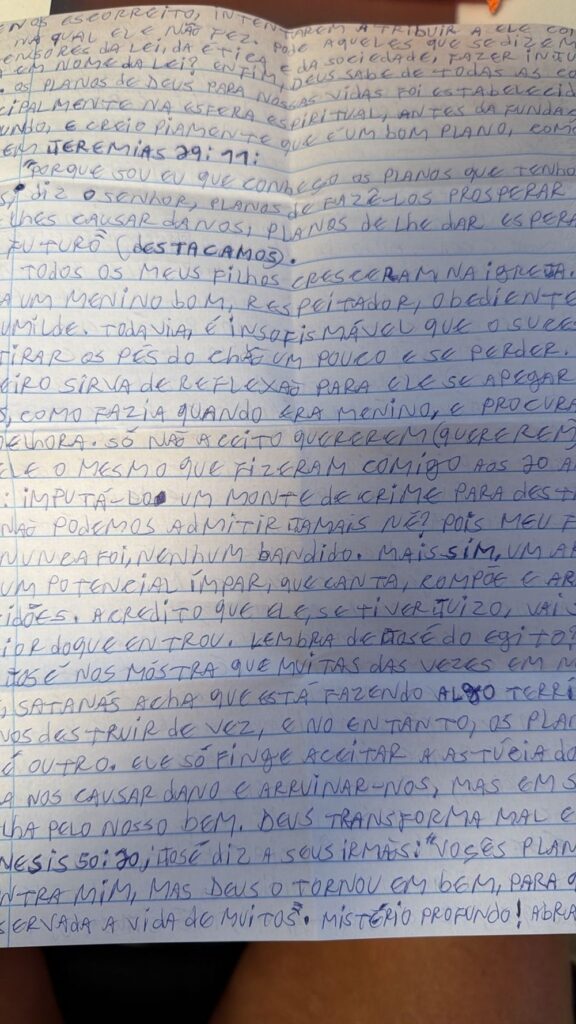 ENOS ESCORREITO, INTENTAREM ATRIBUIR A ELE CO
NA QUAL ELE NÃO FEZ. PODE AQUELES QUE SE DIZEM
ENSORES DA LEI, DA ÉTICA E DA SOCIEDADE, FAZER INJU
A EM NOME DA LEI? ENFIM, DEUS SABE DE TODAS AS CO
. OS PLANOS DE DEUS PARA NOSSAS VIDAS FOI ESTABELECID
CIPALMENTE NA ESFERA ESPIRITUAL, ANTES DA FUNDAÇ
UNDO, E CREIO PIAMENTE QUE É UM BOM PLANO, COMO
EM JEREMIAS 29:11:
"PORQUE SOU EU QUE CONHEÇO OS PLANOS QUE TENHO
S, DIZ O SENHOR, PLANOS DE FAZÊ-LOS PROSPERAR
LHES CAUSAR DANOS, PLANOS DE LHE DAR ESPERA
FUTURO" (DESTACAMOS).
TODOS OS MEUS FILHOS CRESCERAM NA IGREJA.
A UM MENINO BOM, RESPEITADOR, OBEDIENTE
UMILDE. TODAVIA, É INSOFISMÁVEL QUE O SUCES
TIRAR OS PÉS DO CHÃO UM POUCO E SE PERDER.
EIRO SIRVA DE REFLEXÃO PARA ELE SE APEGAR
S, COMO FAZIA QUANDO ERA MENINO, E PROCURA
ELHORA. SÓ NÃO ACEITO QUEREREM (QUEREREM)
ELE O MESMO QUE FIZERAM COMIGO AOS 20 A
: IMPUTÁ-LO UM MONTE DE CRIME PARA DESTR
NÃO PODEMOS ADMITIR JAMAIS NÉ? POIS MEU F
NUNCA FOI, NENHUM BANDIDO. MAIS SIM, UM AR
UM POTENCIAL ÍMPAR, QUE CANTA, COMPÕE E AR
IDÕES. ACREDITO QUE ELE, SE TIVER JUIZO, VAI S
IOR DO QUE ENTROU. LEMBRA DE JOSÉ DO EGITO?
JOSÉ NOS MÓSTRA QUE MUITAS DAS VEZES EM N
, SATANÁS ACHA QUE ESTÁ FAZENDO ALGO TERRÍ
NOS DESTRUIR DE VEZ, E NO ENTANTO, OS PLAN
É OUTRO. ELE SÓ FINGE ACEITAR A ASTÚCIA DO
A NOS CAUSAR DANO E ARRUINAR-NOS, MAS EM S
LHA PELO NOSSO BEM. DEUS TRANSFORMA MAL E
NESIS 50:20, JOSÉ DIZ A SEUS IRMÃS: "VOSÊS PLAN
NTRA MIM, MAS DEUS O TORNOU EM BEM, PARA Q
SERVADA A VIDA DE MUITOS". MISTÉRIO PROFUNDO! ABRA